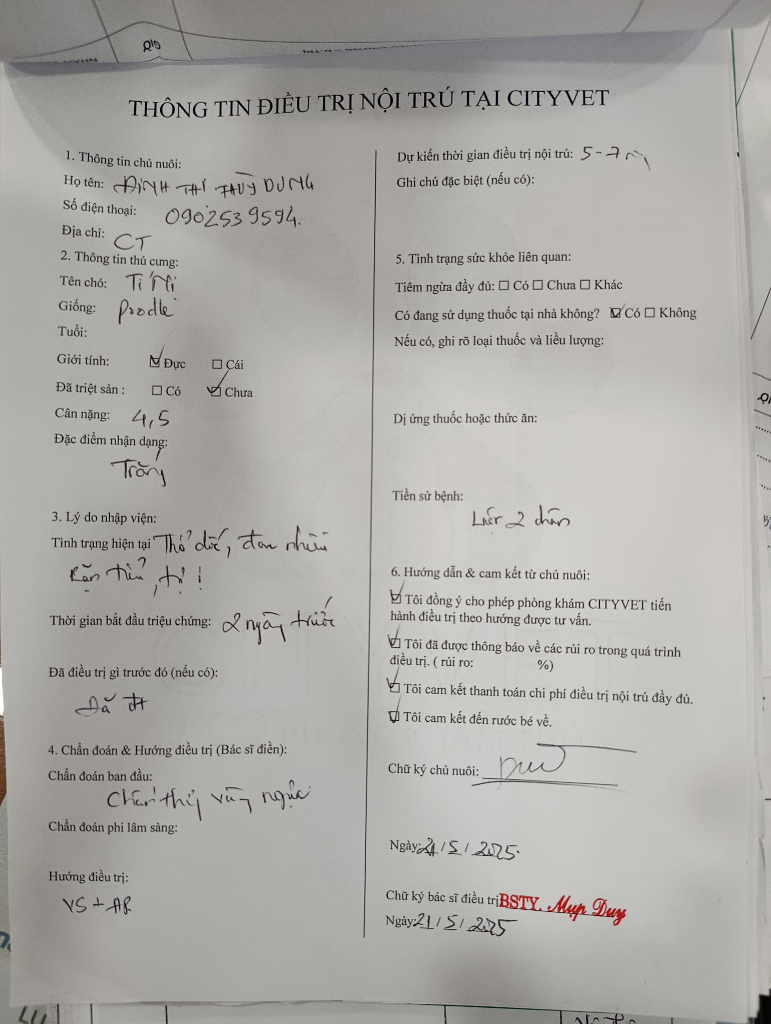 THÔNG TIN ĐIỀU TRỊ NỘI TRÚ TẠI CITYVET
1. Thông tin chủ nuôi:
Họ tên: ĐINH THỊ THUỲ DUNG
Số điện thoại: 0902539594.
Địa chỉ: CT
2. Thông tin thú cưng:
Tên chó: Ti Ni
Giống: Poodle
Tuổi:
Giới tính: ☑ Đực ☐ Cái
Đã triệt sản : ☐ Có ☑ Chưa
Cân nặng: 4,5
Đặc điểm nhận dạng:
Trắng
3. Lý do nhập viện:
Tình trạng hiện tại Thở dốc, đau nhiều
tiểu
Thời gian bắt đầu triệu chứng: 2 ngày trước
Đã điều trị gì trước đó (nếu có):
Đã đt
4. Chẩn đoán & Hướng điều trị (Bác sĩ điền):
Chẩn đoán ban đầu:
vùng ngực
Chẩn đoán phi lâm sàng:
Hướng điều trị:
VS +
Dự kiến thời gian điều trị nội trú: 5-7
Ghi chú đặc biệt (nếu có):
5. Tình trạng sức khỏe liên quan:
Tiêm ngừa đầy đủ: ☐ Có ☐ Chưa ☐ Khác
Có đang sử dụng thuốc tại nhà không? ☑ Có ☐ Không
Nếu có, ghi rõ loại thuốc và liều lượng:
Dị ứng thuốc hoặc thức ăn:
Tiền sử bệnh:
Liệt 2 chân
6. Hướng dẫn & cam kết từ chủ nuôi:
☑ Tôi đồng ý cho phép phòng khám CITYVET tiến
hành điều trị theo hướng được tư vấn.
☑ Tôi đã được thông báo về các rủi ro trong quá trình
điều trị. ( rủi ro: %)
☑ Tôi cam kết thanh toán chi phí điều trị nội trú đầy đủ.
☑ Tôi cam kết đến rước bé về.
Chữ ký chủ nuôi:
Ngày: 21/5/2025.
Chữ ký bác sĩ điều trị BSTY. Mup Duy
Ngày: 21/5/2025